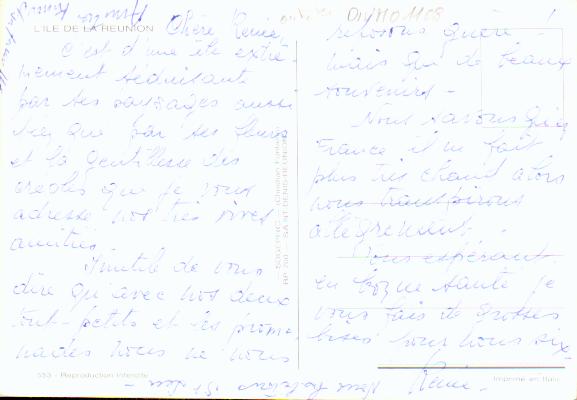 L'ILE DE LA REUNION
Chère Renée,
C'est d'une île extrê-
mement séduisante
par ses paysages aussi
bien que par ses fleurs
et la gentillesse des
créoles que je vous
adresse nos très vives
amitiés.
Inutile de vous
dire qu'avec nos deux
tout-petits et les prome-
nades nous ne nous
reposons guère !
mais que de beaux
souvenirs -
Nous savons qu'en
France il ne fait
plus très chaud alors
nous transpirons
allègrement.
Vous espérant
en bonne santé je
vous fais de grosses
bises pour nous six
Renée.
553 - Reproduction interdite
Imprimé en Italie